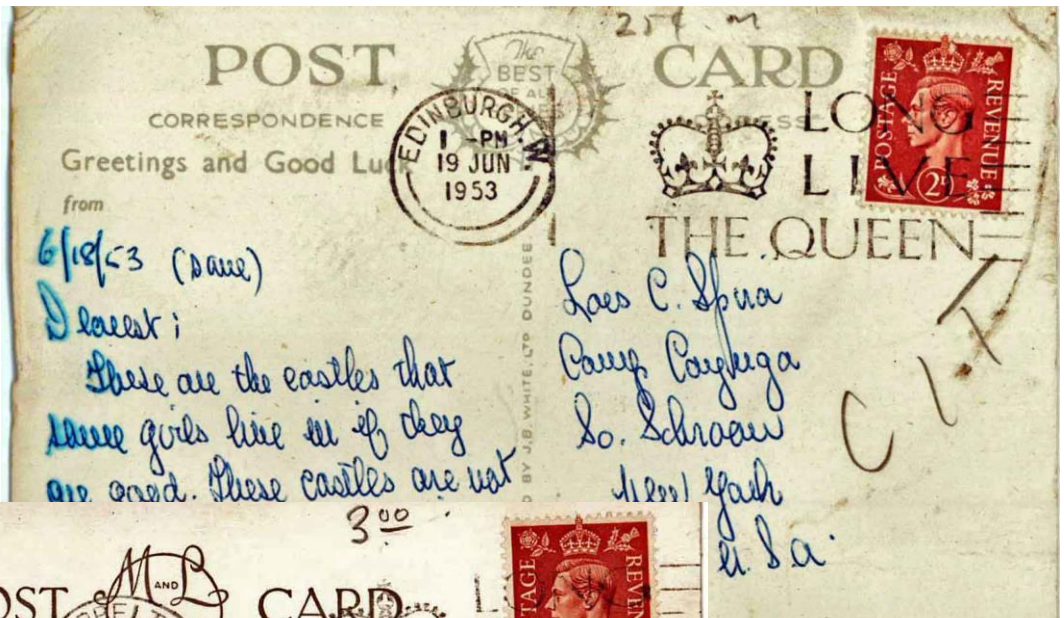 25¢ M
POST CARD
The
BEST
OF ALL
CORRESPONDENCE
ADDRESS
Greetings and Good Luck
from
EDINBURGH.W
1 -PM
19 JUN
1953
LONG
LIVE
THE QUEEN
POSTAGE REVENUE
2D
6/18/53 (Dave)
Dearest;
These are the castles that
some girls live in if they
are good. These castles are not
BY J.B. WHITE, LTD DUNDEE
Lois C. Spira
Camp Cayuga
So. Schroon
New York
U.S.A.
CIT
3 00
POST M AND L CARD